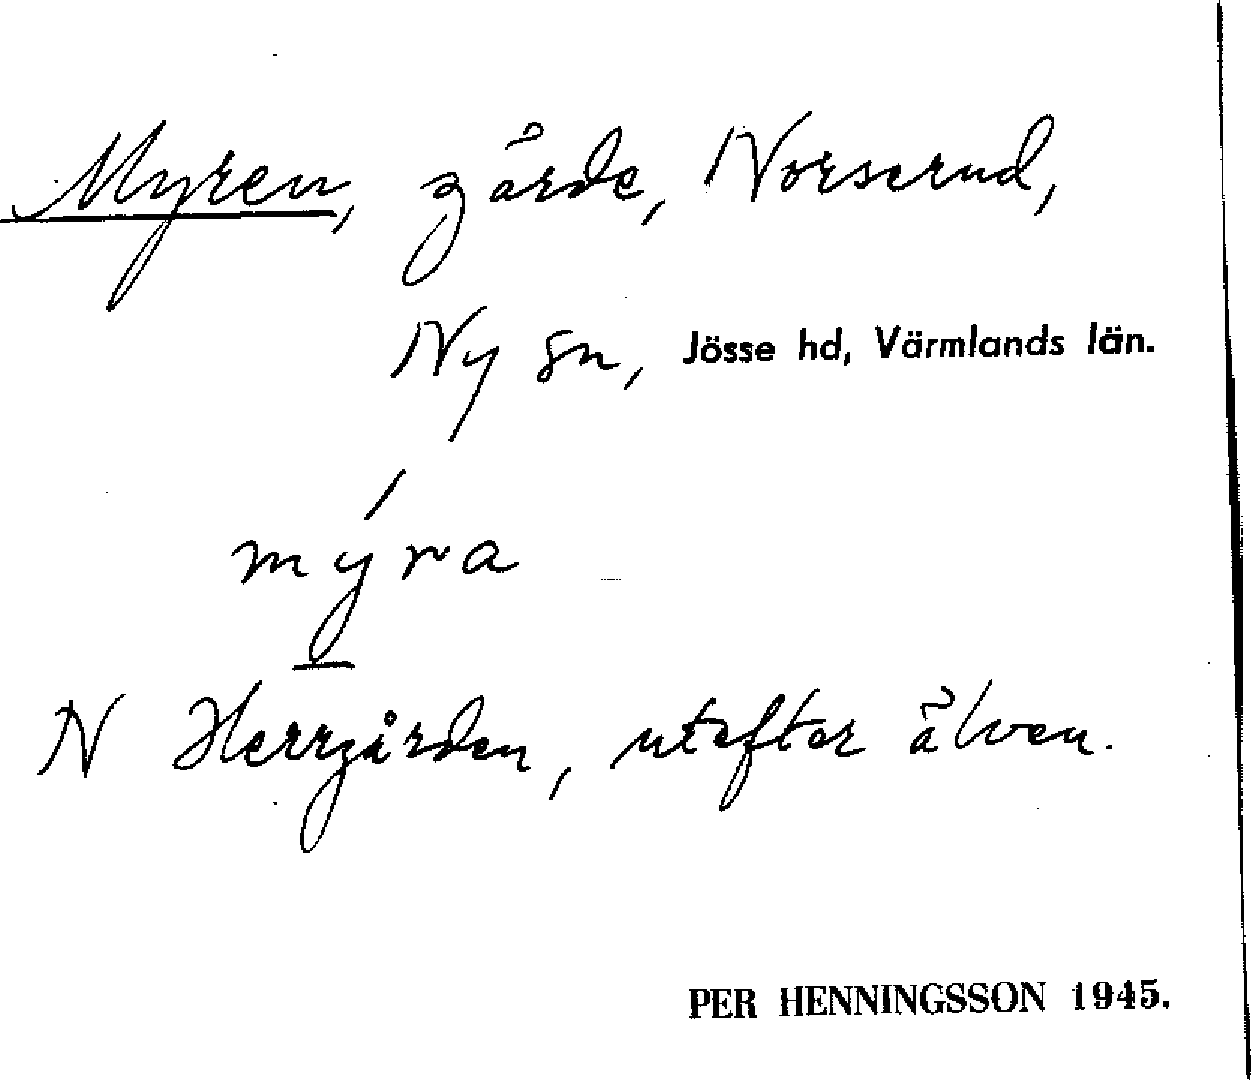 Myren, gärde, Norserud,
Ny sn, Jösse hd, Värmlands län.
mýra
N Herrgården, utefter älven.
PER HENNINGSSON 1945.